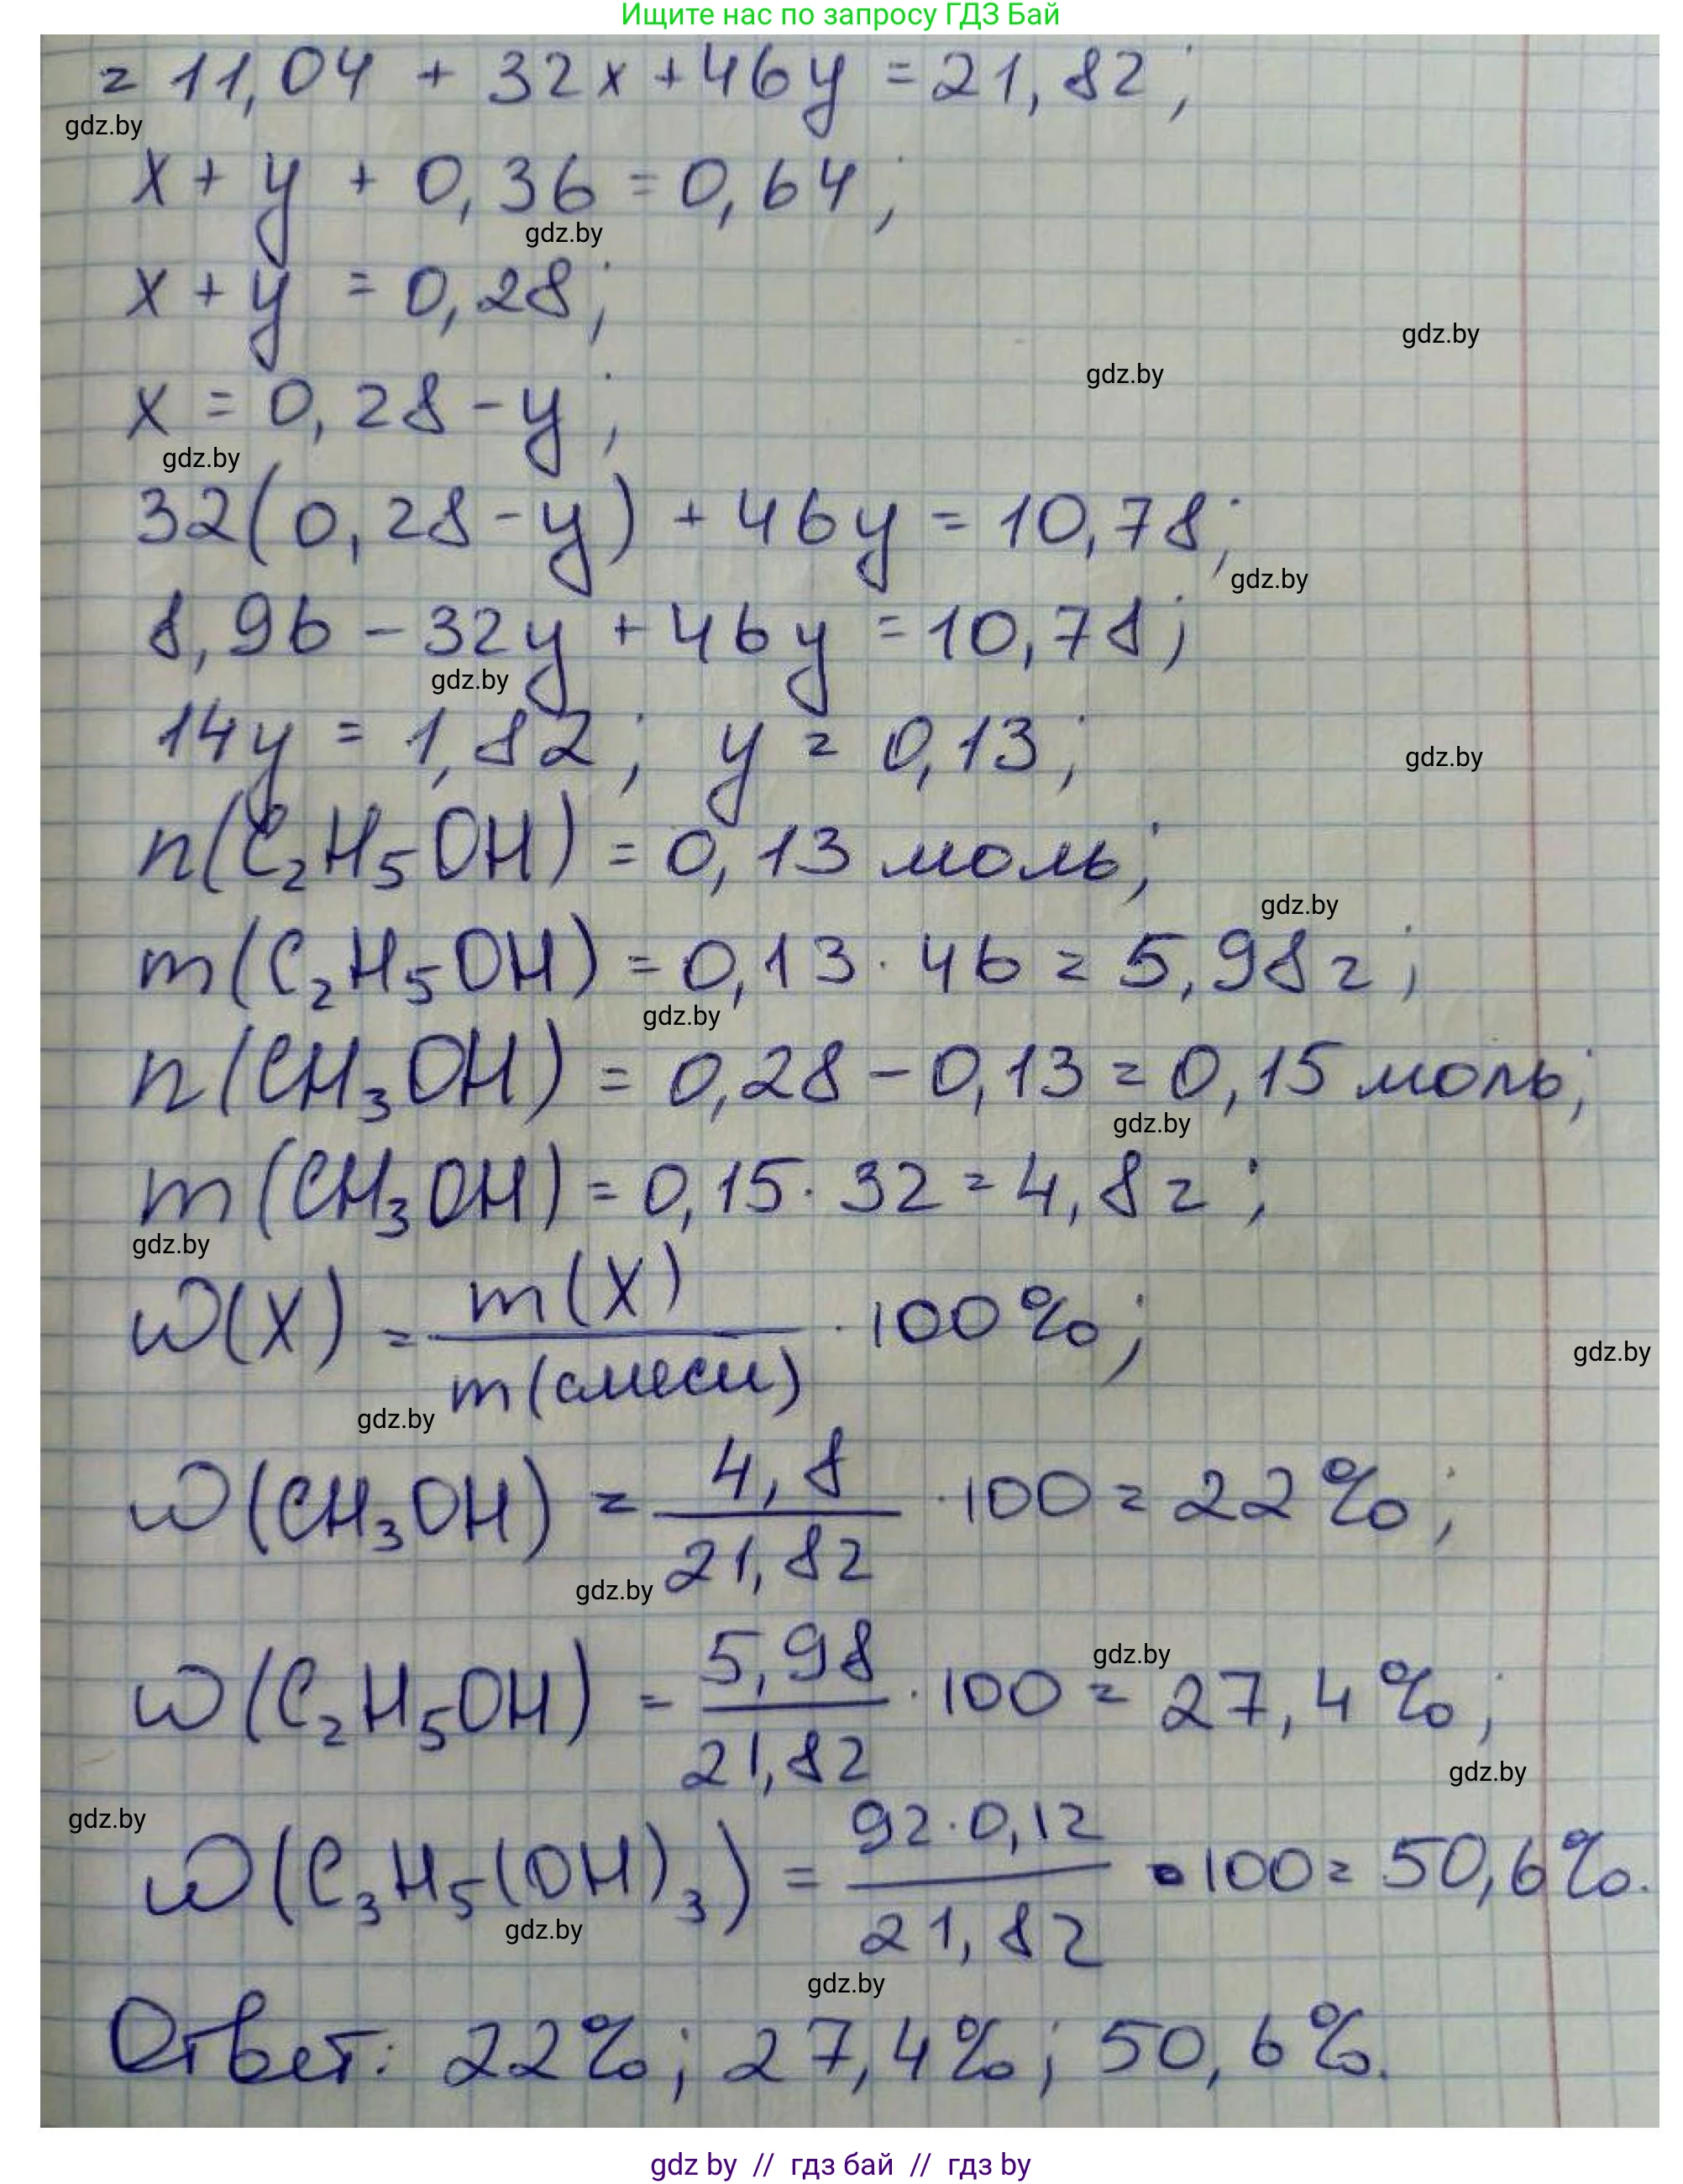 Ищите нас по запросу ГДЗ Бай
= 11,04 + 32x + 46y = 21,82;
gdz.by
x + y + 0,36 = 0,64;
gdz.by
x + y = 0,28;
gdz.by
gdz.by
x = 0,28 - y;
gdz.by
32(0,28 - y) + 46y = 10,78;
gdz.by
8,96 - 32y + 46y = 10,78;
gdz.by
14y = 1,82; y = 0,13;
gdz.by
n(C₂H₅OH) = 0,13 моль;
gdz.by
m(C₂H₅OH) = 0,13 · 46 = 5,98 г;
gdz.by
n(CH₃OH) = 0,28 - 0,13 = 0,15 моль;
gdz.by
m(CH₃OH) = 0,15 · 32 = 4,8 г;
gdz.by
w(X) = m(X) / m(смеси) · 100%;
gdz.by
gdz.by
w(CH₃OH) = 4,8 / 21,82 · 100 = 22%;
gdz.by
w(C₂H₅OH) = 5,98 / 21,82 · 100 = 27,4%;
gdz.by
gdz.by
gdz.by
w(C₃H₅(OH)₃) = 92 · 0,12 / 21,82 · 100 = 50,6%.
gdz.by
gdz.by
Ответ: 22%; 27,4%; 50,6%.
gdz by // гдз бай // gdz by